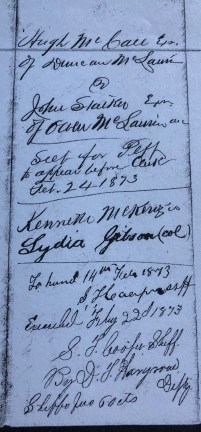 Hugh McCall Exr.
of Duncan McLaurin
vs
John Stalker Exr.
of Owen McLaurin
Sect for Plff
to appear before Clerk
Feb. 24 1873
Kenneth McKenzie
Lydia Gibson (col)
To hand 14th Feb 1873
Executed Feby 22d 1873
S. T. Cooper Shff.
By D. T. Depty
Shff fee 60 cts